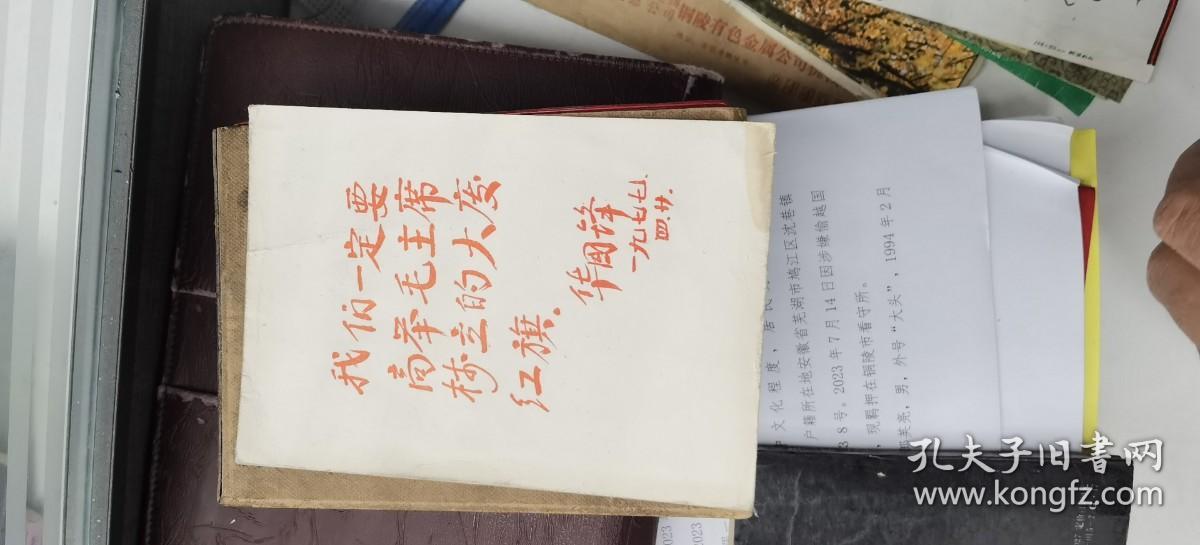 我们一定要
高举毛主席
树立的大庆
红旗。
华国锋
一九七七、
四、廿、
铜陵有色金属公司
文化程度，居民
户籍所在地安徽省芜湖市鸠江区沈巷镇
38号。2023年7月14日因涉嫌偷越国
，现羁押在铜陵市看守所。
美亮，男，外号“大头”，1994年2月
2023
2023
孔夫子旧书网
www.kongfz.com